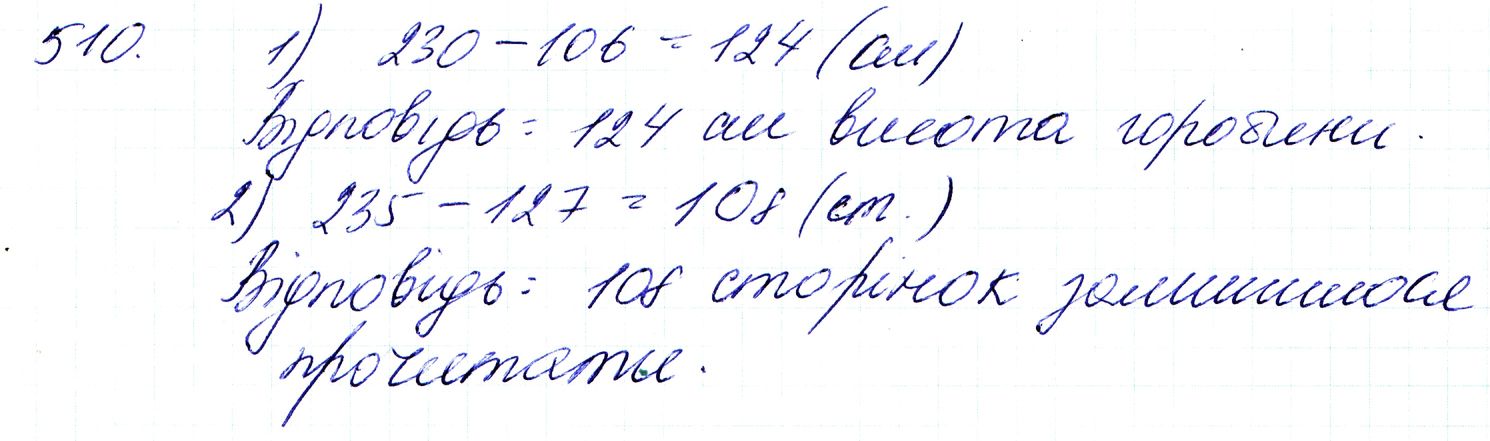 510. 1) 230 - 106 = 124 (см)
Відповідь: 124 см висота горобини.
2) 235 - 127 = 108 (ст.)
Відповідь: 108 сторінок залишилося
прочитати.